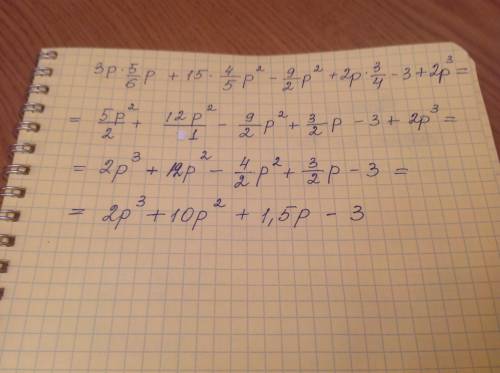 3p · 5/6 p + 15 · 4/5 p² - 9/2 p² + 2p · 3/4 - 3 + 2p³ =
= 5p²/2 + 12p²/1 - 9/2 p² + 3/2 p - 3 + 2p³ =
= 2p³ + 12p² - 4/2 p² + 3/2 p - 3 =
= 2p³ + 10p² + 1,5p - 3